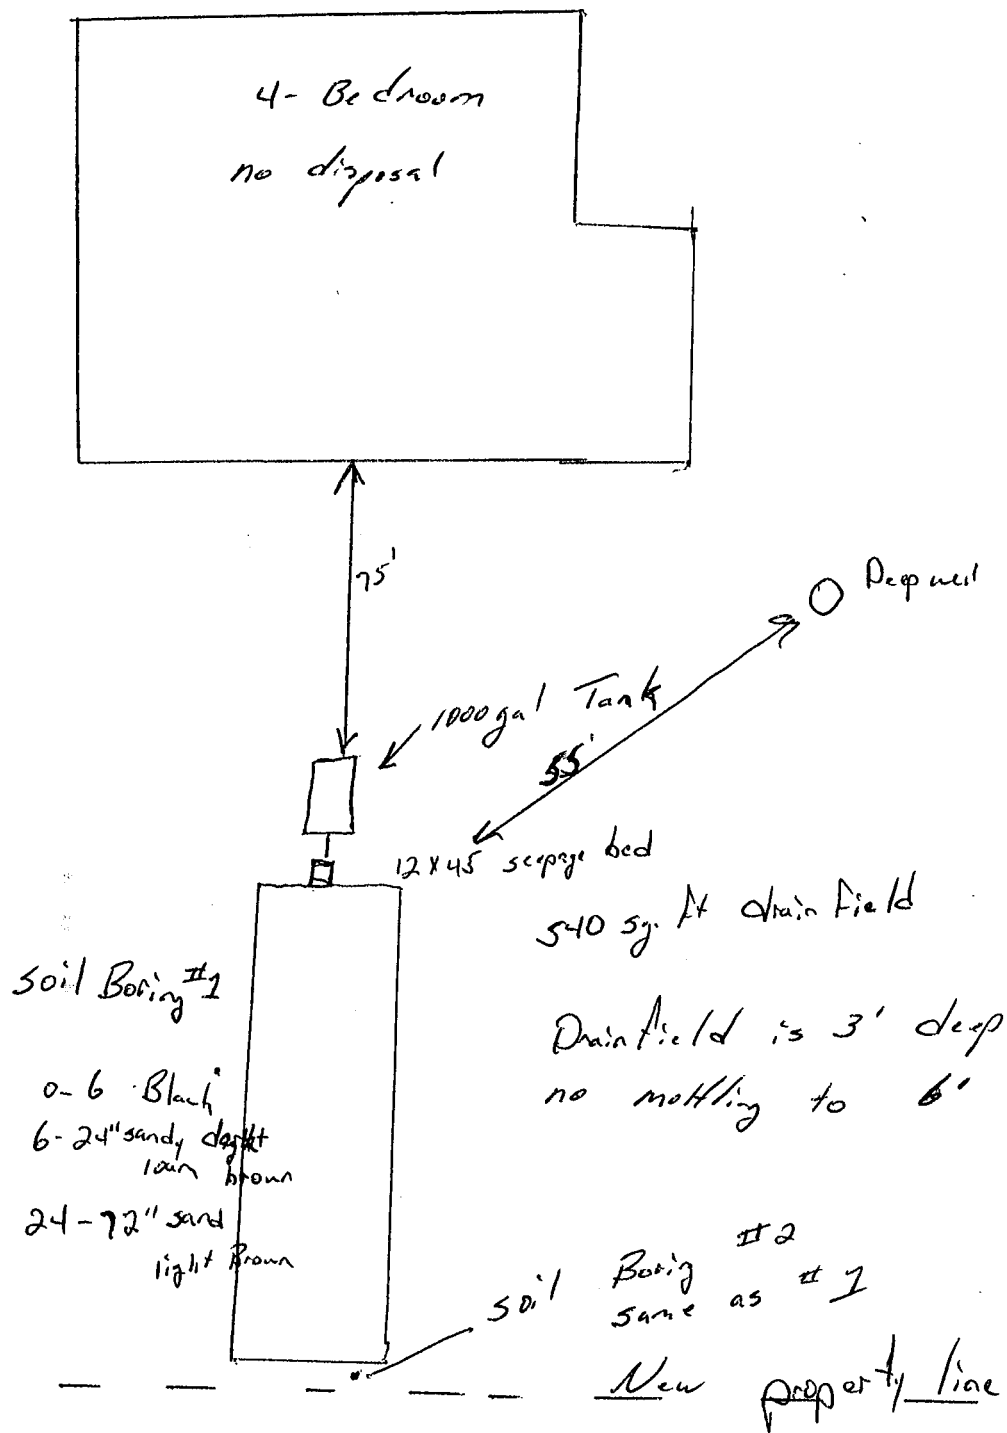 4- Bedroom
no disposal
75'
Deep well
1000 gal Tank
55'
12 x 45 seepage bed
540 sq. ft drain field
soil Boring #1
Drainfield is 3' deep
no mottling to 6'
0-6 Black
6-24" sandy
loam brown
24-72" sand
light Brown
soil Borig #2
same as #1
New property line